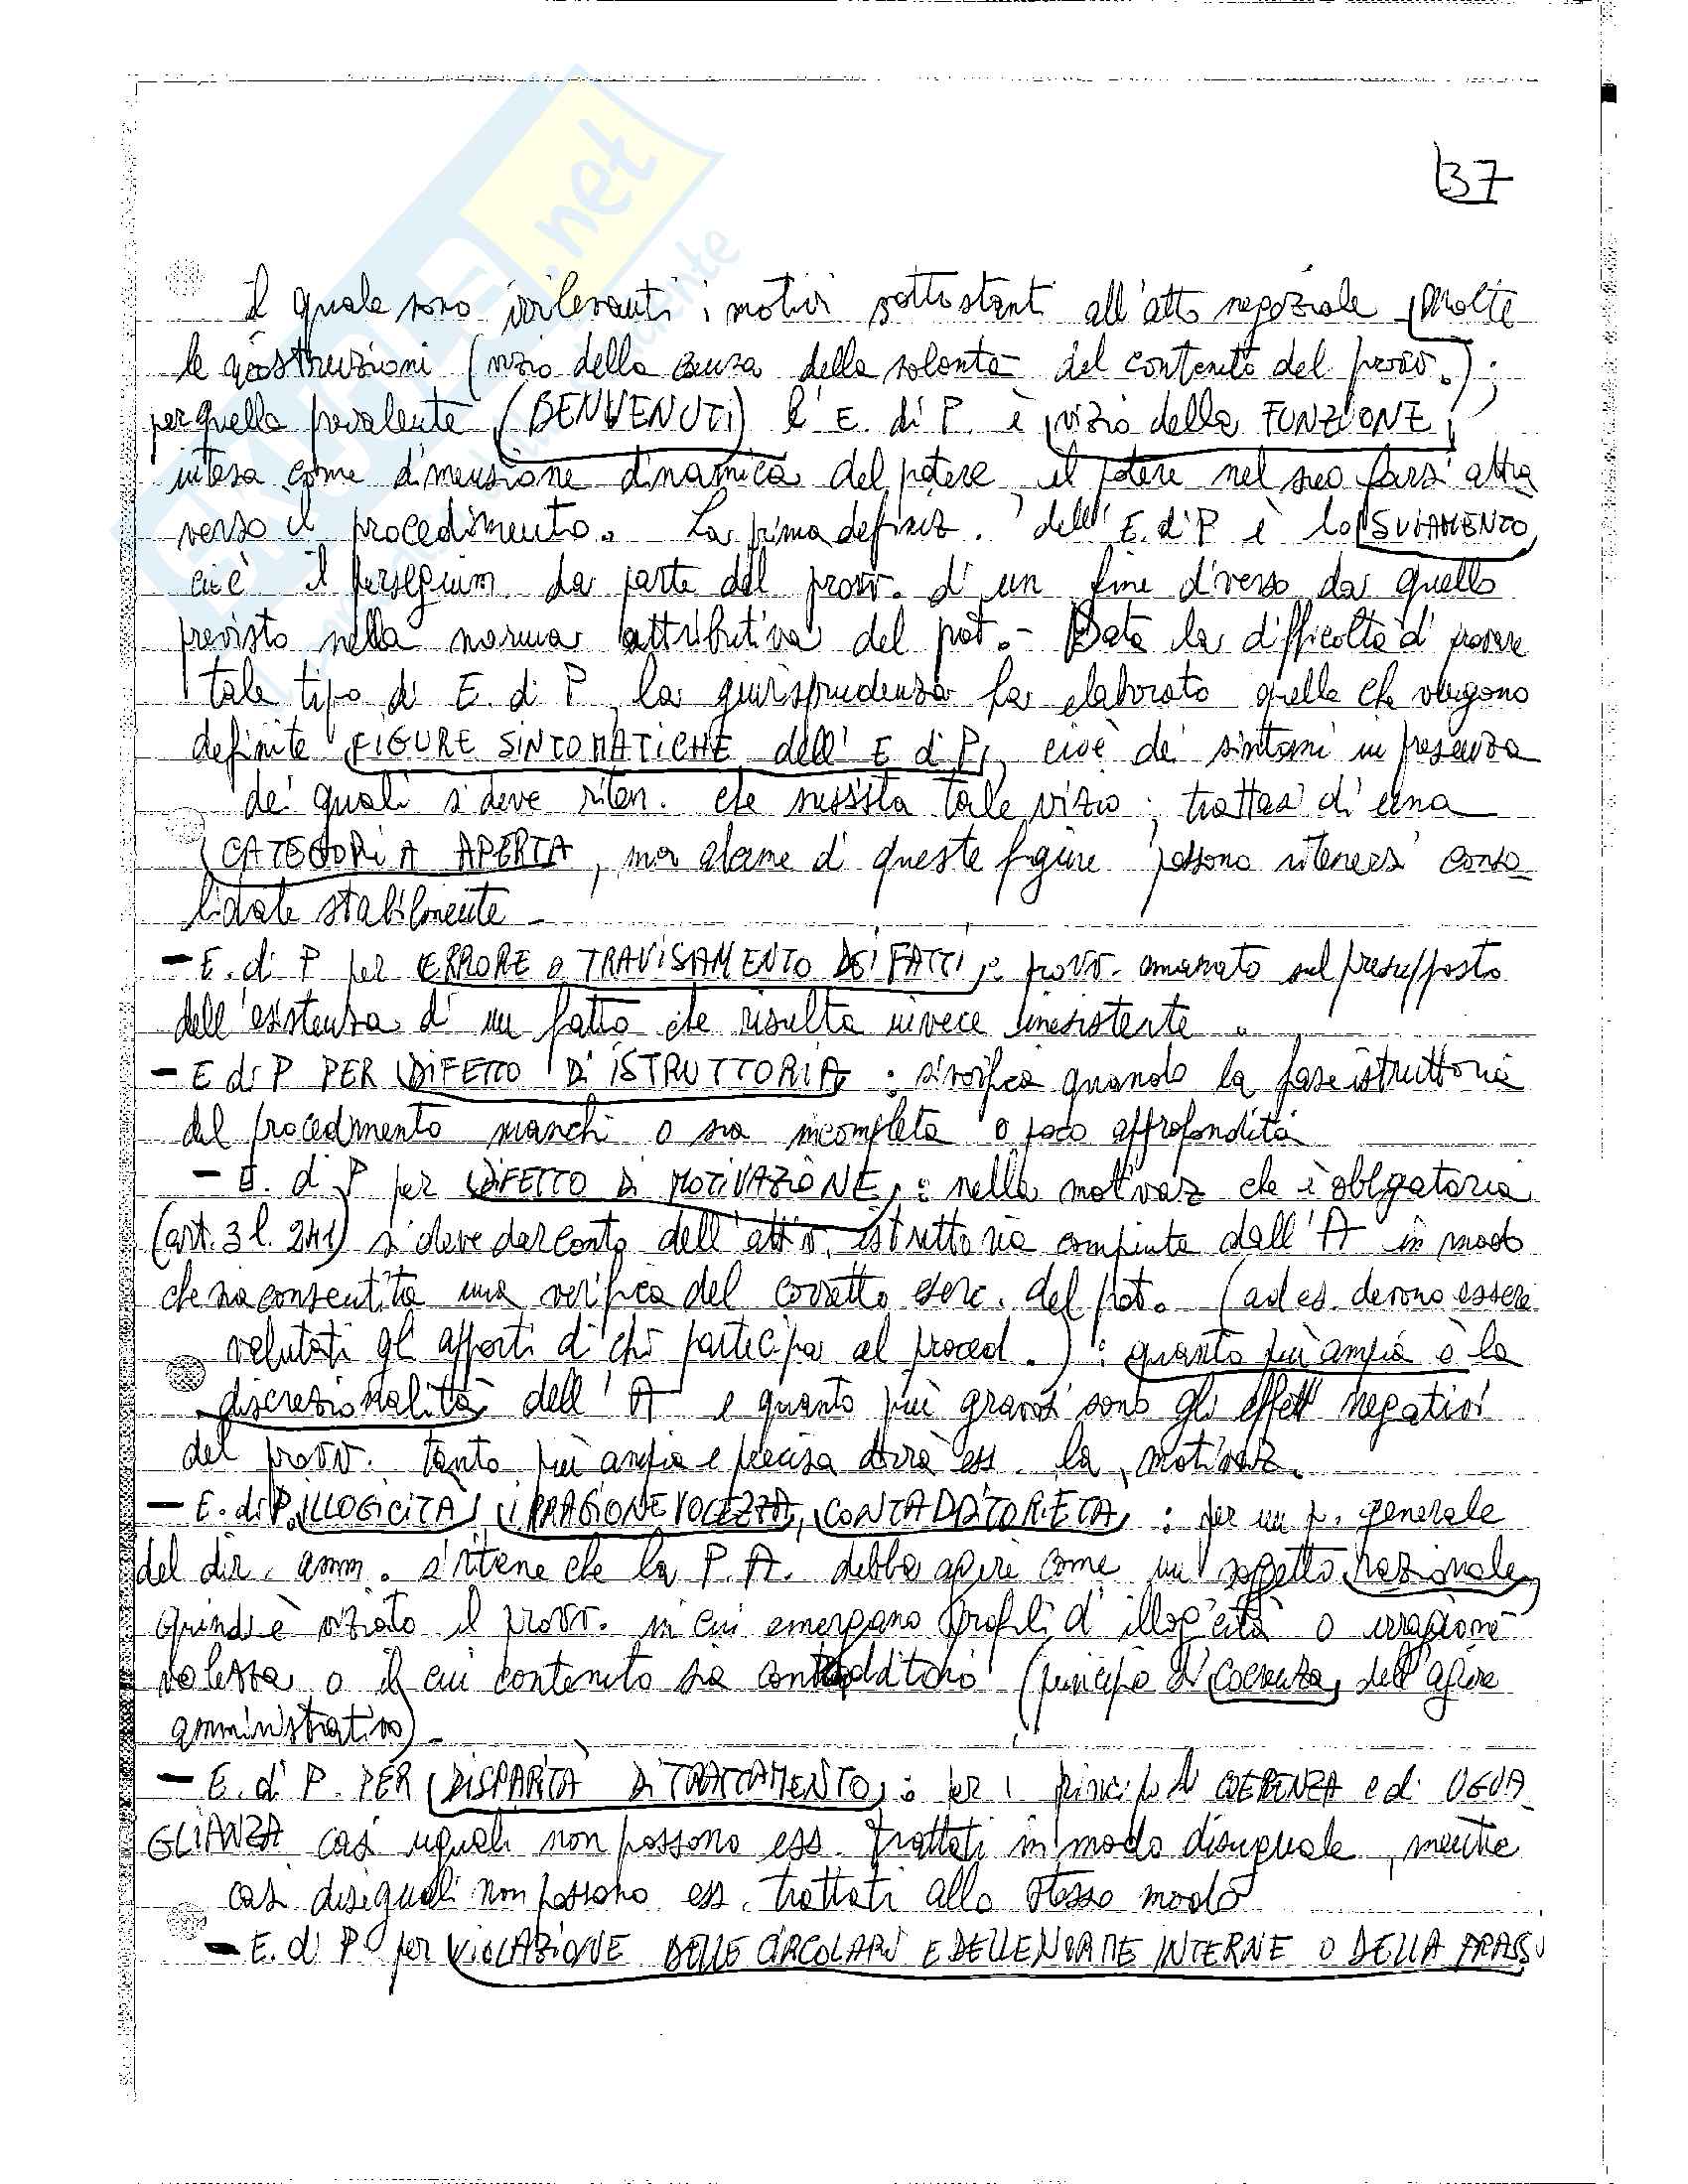 37
il quale sono irrilevanti i motivi sottostanti all'atto negoziale (molte
le ricostruzioni (vizio della causa della volontà del contenuto del provv.) ;
per quella prevalente (BENVENUTI) l'E. di P. è vizio della FUNZIONE,
intesa come dimensione dinamica del potere, il potere nel suo farsi attra
verso il procedimento. La prima definiz. dell'E. di P è lo SVIAMENTO,
cioè il perseguim. da parte del provv. di un fine diverso da quello
previsto nella norma attributiva del pot. - Data la difficoltà di provare
tale tipo di E. di P, la giurisprudenza ha elaborato quelle che vengono
definite FIGURE SINTOMATICHE dell'E di P, cioè dei sintomi in presenza
dei quali si deve riten. che sussista tale vizio ; trattasi di una
CATEGORIA APERTA, ma alcune di queste figure possono ritenersi conso
lidate stabilmente -
- E. di P per ERRORE o TRAVISAMENTO DEI FATTI : provv. emanato sul presupposto
dell'esistenza di un fatto che risulta invece inesistente .
- E di P PER DIFETTO DI ISTRUTTORIA : si verifica quando la fase istruttoria
del procedimento manchi o sia incompleta o poco approfondita
- E. di P per DIFETTO DI MOTIVAZIONE : nella motivaz che è obbligatoria
(art. 3 l. 241) si deve dar conto dell'attiv. istruttoria compiuta dall'A in modo
che sia consentita una verifica del corretto eserc. del pot. (ad es. devono essere
valutati gli apporti di chi partecipa al proced.) : quanto più ampia è la
discrezionalità dell'A e quanto più gravosi sono gli effetti negativi
del provv. tanto più ampia e precisa dovrà ess. la motivaz.
- E. di P. ILLOGICITÀ, IRRAGIONEVOLEZZA, CONTADDITORIETÀ : per un p. generale
del dir. amm. si ritiene che la P.A. debba agire come un soggetto razionale,
quindi è viziato il provv. in cui emergano profili di illogicità o irragione
volezza o il cui contenuto sia contraddittorio (principio di coerenza dell'agire
amministrativo) -
- E. di P. PER DISPARITÀ DI TRATTAMENTO : per i principi di COERENZA e di UGUA
GLIANZA casi uguali non possono ess. trattati in modo disuguale, mentre
casi diseguali non possono ess. trattati allo stesso modo
- E. di P per VIOLAZIONE DELLE CIRCOLARI E DELLE NORME INTERNE O DELLA PRASSI
.net